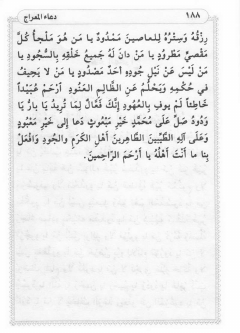 ١٨٨
دعاء المعراج
رِزْقُهُ وَسِتْرُهُ لِلعاصينَ مَمْدُودٌ يا مَن هُوَ مَلْجَأُ كُلِّ
مُقْصىً مَطْرُودٍ يا مَنْ دانَ لَهُ جَميعُ خَلْقِهِ بِالسُّجُودِ يا
مَنْ لَيْسَ عَنْ نَيْلِ جُودِهِ أحَدٌ مَصْدُودٍ يا مَنْ لا يَحيفُ
في حُكْمِهِ وَيَحْلُمُ عَنِ الظّالِمِ العَنُودِ أرْحَمْ عُبَيْداً
خاطِئاً لَمْ يوفِ بِالعُهُودِ إنَّكَ فَعّالٌ لِما تُريدُ يا بارُّ يا
وَدُودُ صَلِّ عَلى مُحَمَّدٍ خَيْرِ مَبْعُوثٍ دَعا إلى خَيْرِ مَعْبُودٍ
وَعَلى آلِهِ الطَّيِّبينَ الطّاهِرينَ أهْلِ الكَرَمِ وَالجُودِ وَافْعَلْ
بِنا ما أنتَ أهْلُهُ يا أرْحَمَ الرّاحِمينَ.